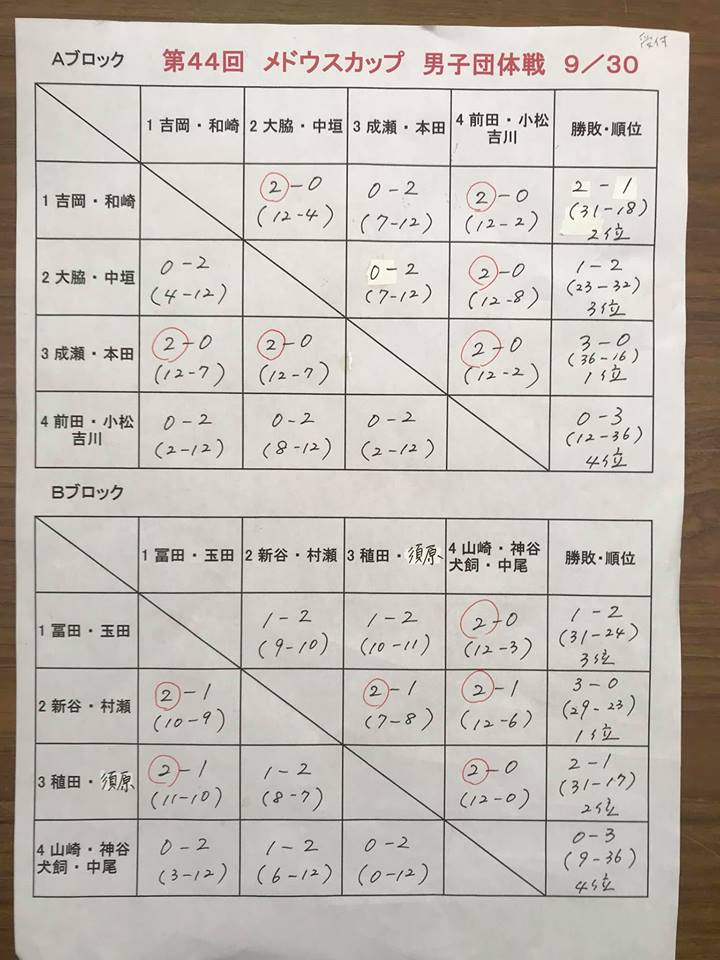 受付
Aブロック 第44回 メドウスカップ 男子団体戦 9／30
1 吉岡・和崎 2 大脇・中垣 3 成瀬・本田 4 前田・小松 勝敗・順位
吉川
1 吉岡・和崎 ②-0 0-2 ②-0 2-1
(12-4) (7-12) (12-2) (31-18)
2位
2 大脇・中垣 0-2 0-2 ②-0 1-2
(4-12) (7-12) (12-8) (23-32)
3位
3 成瀬・本田 ②-0 ②-0 ②-0 3-0
(12-7) (12-7) (12-2) (36-16)
1位
4 前田・小松 0-2 0-2 0-2 0-3
吉川 (2-12) (8-12) (2-12) (12-36)
4位
Bブロック
1 冨田・玉田 2 新谷・村瀬 3 稙田・須原 4 山崎・神谷 勝敗・順位
犬飼・中尾
1 冨田・玉田 1-2 1-2 ②-0 1-2
(9-10) (10-11) (12-3) (31-24)
3位
2 新谷・村瀬 ②-1 ②-1 ②-1 3-0
(10-9) (7-8) (12-6) (29-23)
1位
3 稙田・須原 ②-1 1-2 ②-0 2-1
(11-10) (8-7) (12-0) (31-17)
2位
4 山崎・神谷 0-2 1-2 0-2 0-3
犬飼・中尾 (3-12) (6-12) (0-12) (9-36)
4位